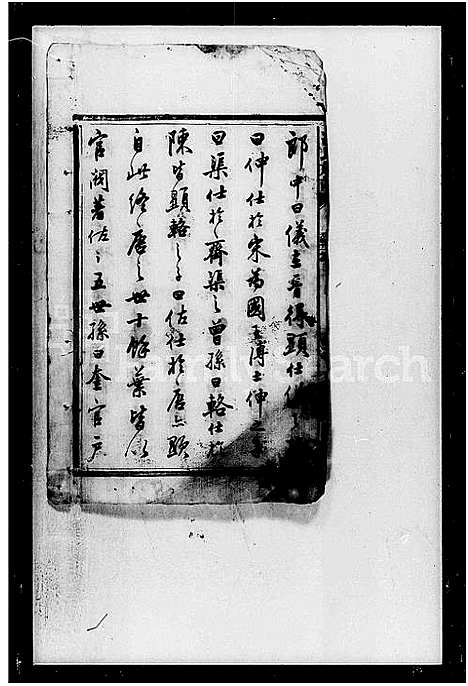 郎中曰儀在晉得顯仕儀之
曰仲仕於宋為國子博士仲之子
曰渠仕於齊渠之曾孫曰輅仕於
陳皆顯輅之子曰佐仕於唐亦顯
自此終唐之世十餘葉皆以
官閥著佐之五世孫曰奎官户
FamilySearch